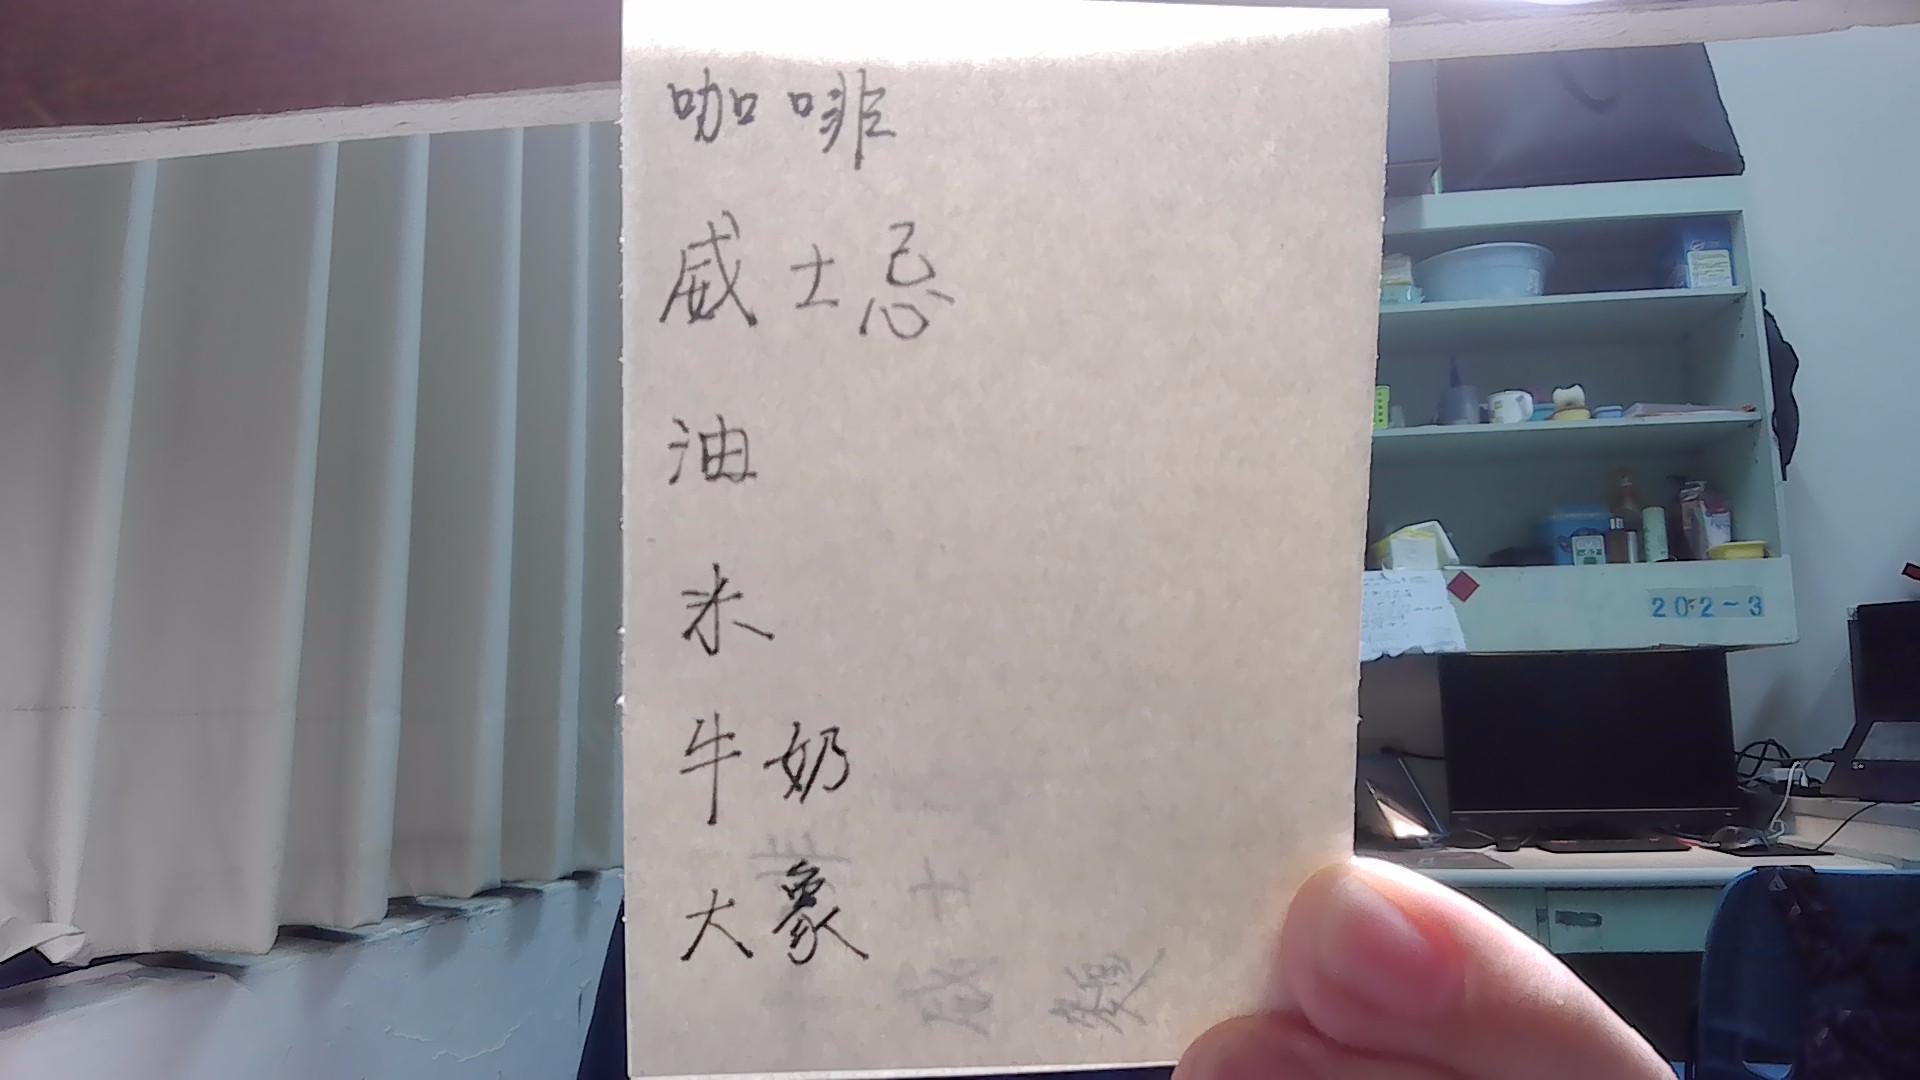 咖啡
威士忌
油
米
牛奶
大象
202-3